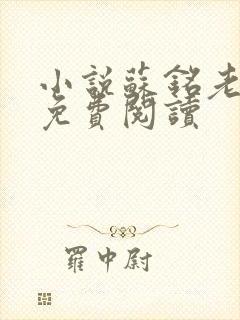 小說蘇銘老
免費閱讀
羅中尉